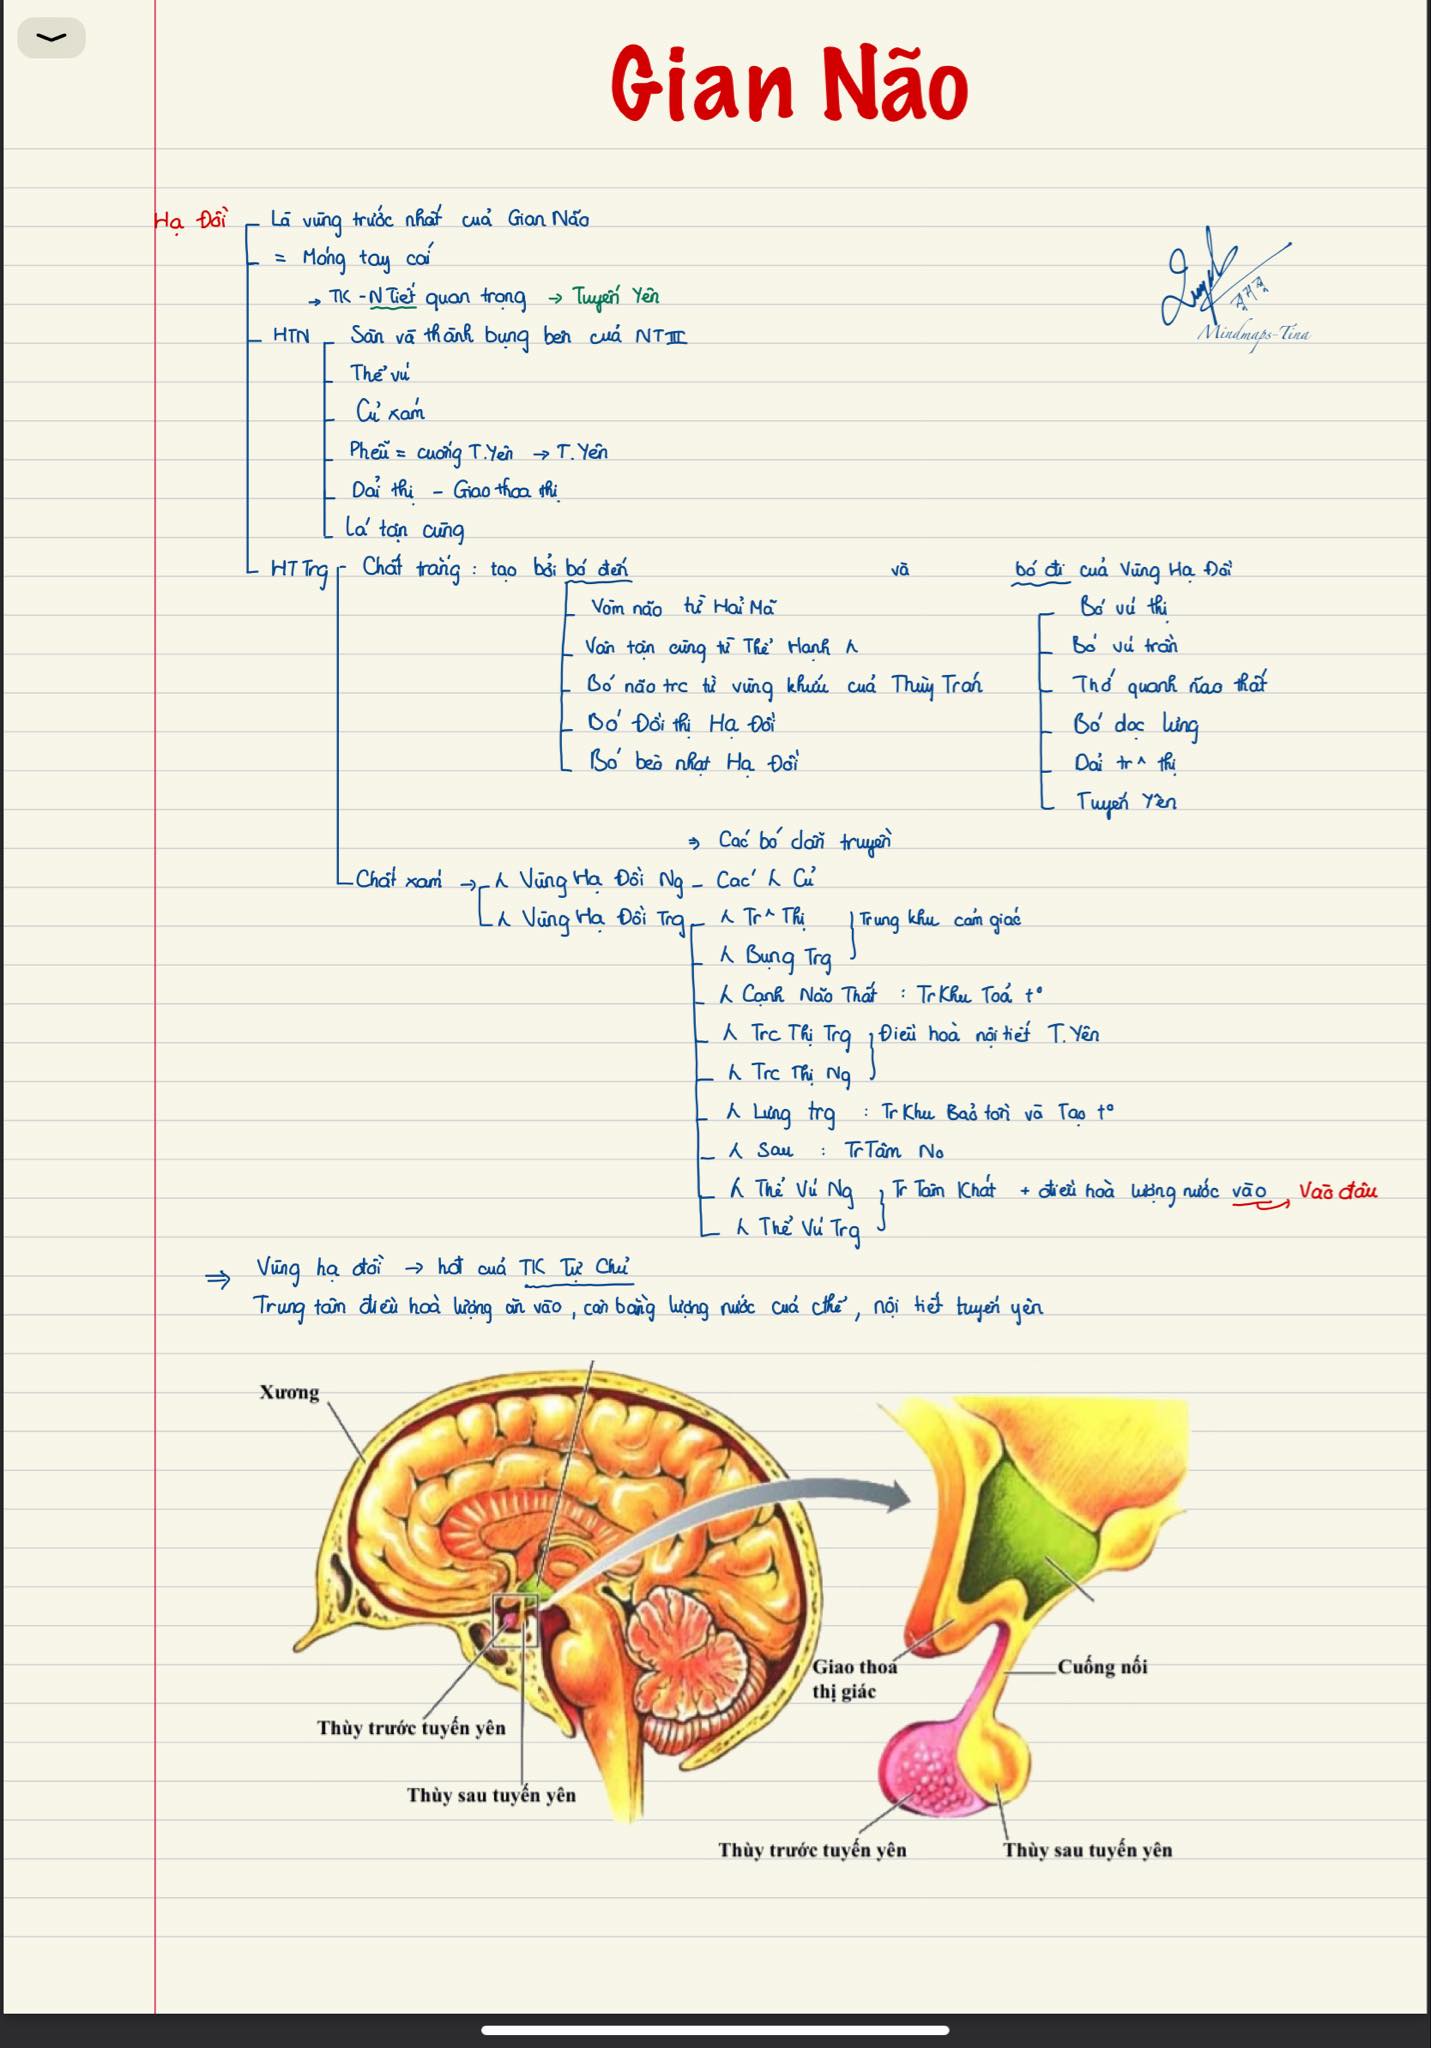 Gian Não
Hạ Đồi
Là vùng trước nhất của Gian Não
= Móng tay cái
→ TK - N Tiết quan trọng → Tuyến Yên
HTN
Sàn và thành bụng bên của NT III
Thể vú
Củ xám
Phễu = cuống T.Yên → T.Yên
Dải thị - Giao thoa thị
Lá tận cùng
HTTrg
Chất trắng : tạo bởi bó đến và bó đi của Vùng Hạ Đồi
Vòm não từ Hải Mã
Vân tận cùng từ Thể Hạnh h
Bó não trc từ vùng khứu của Thùy Trán
Bó Đồi thị Hạ Đồi
Bó bèo nhạt Hạ Đồi
Bó vú thị
Bó vú trần
Thớ quanh não thất
Bó dọc lưng
Dải tr^ thị
Tuyến Yên
⇒ Các bó dẫn truyền
Chất xám → h Vùng Hạ Đồi Ng - Các h Củ
h Vùng Hạ Đồi Trg
h Tr^ Thị
h Bụng Trg
Trung khu cảm giác
h Cạnh Não Thất : Tr Khu Toả t°
h Trc Thị Trg
h Trc Thị Ng
Điều hoà nội tiết T.Yên
h Lưng trg : Tr Khu Bảo tồn và Tạo t°
h Sau : Tr Tâm No
h Thể Vú Ng
h Thể Vú Trg
Tr Tâm Khát + điều hoà lượng nước vào → Vào đâu
⇒ Vùng hạ đồi → hđ của TK Tự Chủ
Trung tâm điều hoà lượng ăn vào, cân bằng lượng nước của cthể, nội tiết tuyến yên
Mindmaps-Tina
Xương
Thùy trước tuyến yên
Thùy sau tuyến yên
Giao thoa
thị giác
Cuống nối
Thùy trước tuyến yên
Thùy sau tuyến yên